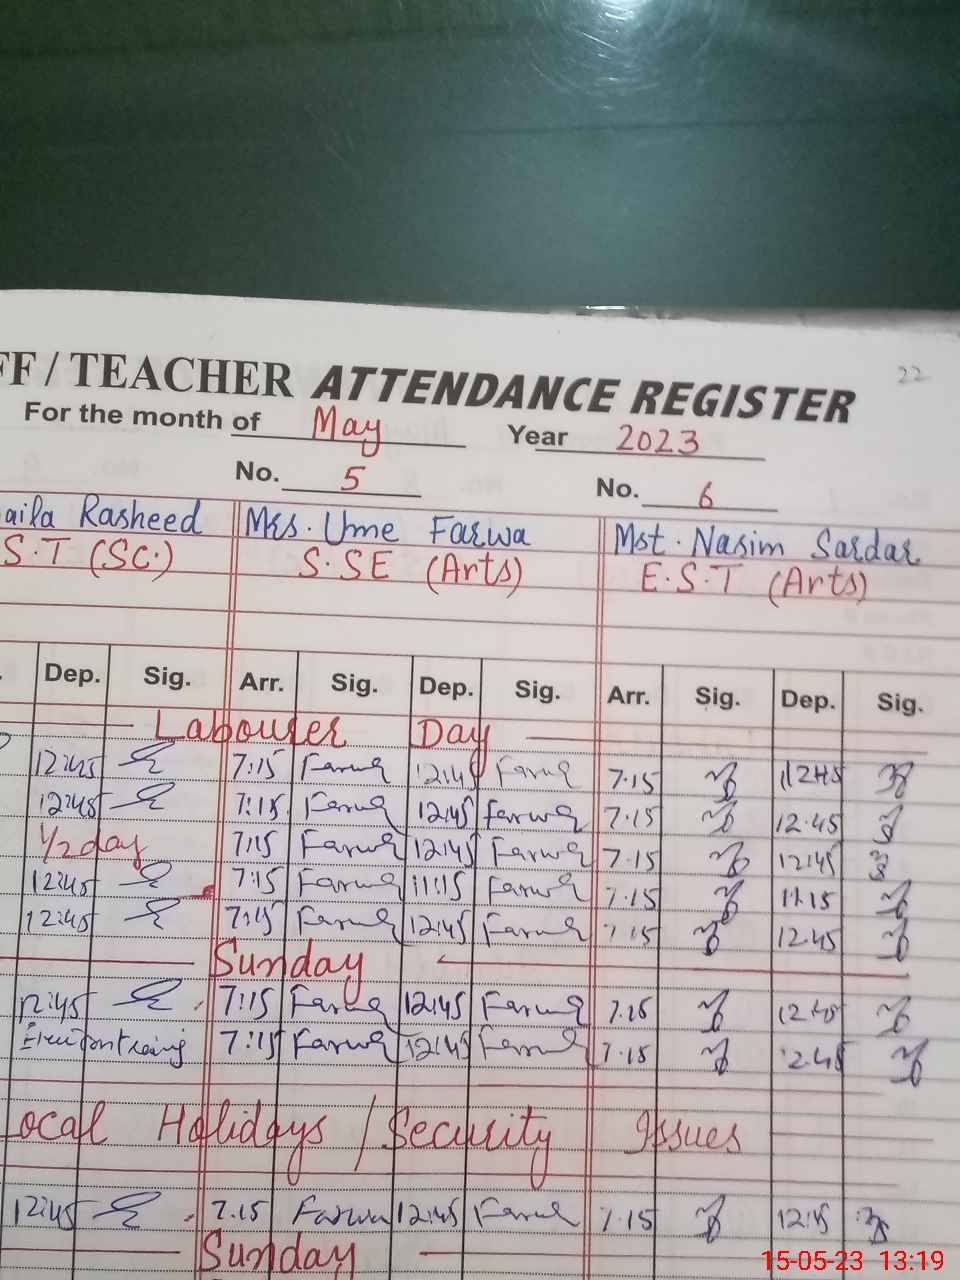 22
FF / TEACHER ATTENDANCE REGISTER
For the month of May Year 2023
No. 5 No. 6
aila Rasheed Mrs. Ume Farwa Mst. Nasim Sardar
S.T (SC.) S.SE (Arts) E.S.T (Arts)
Dep. Sig. Arr. Sig. Dep. Sig. Arr. Sig. Dep. Sig.
Labourer Day
12:45 7:15 Farwa 12:45 Farwa 7.15 12:45
12:45 7:15 Farwa 12:45 Farwa 7.15 12.45
1/2 day 7:15 Farwa 12:45 Farwa 7.15 12:45
12:45 7:15 Farwa 11:15 Farwa 7.15 11.15
12:45 7:15 Farwa 12:45 Farwa 7.15 12.45
Sunday
12:45 7:15 Farwa 12:45 Farwa 7.15 12:45
7:15 Farwa 12:45 Farwa 7.15 12.45
Local Holidays / Security Issues
12:45 7.15 Farwa 12:45 Farwa 7.15 12:45
Sunday
15-05-23 13:19